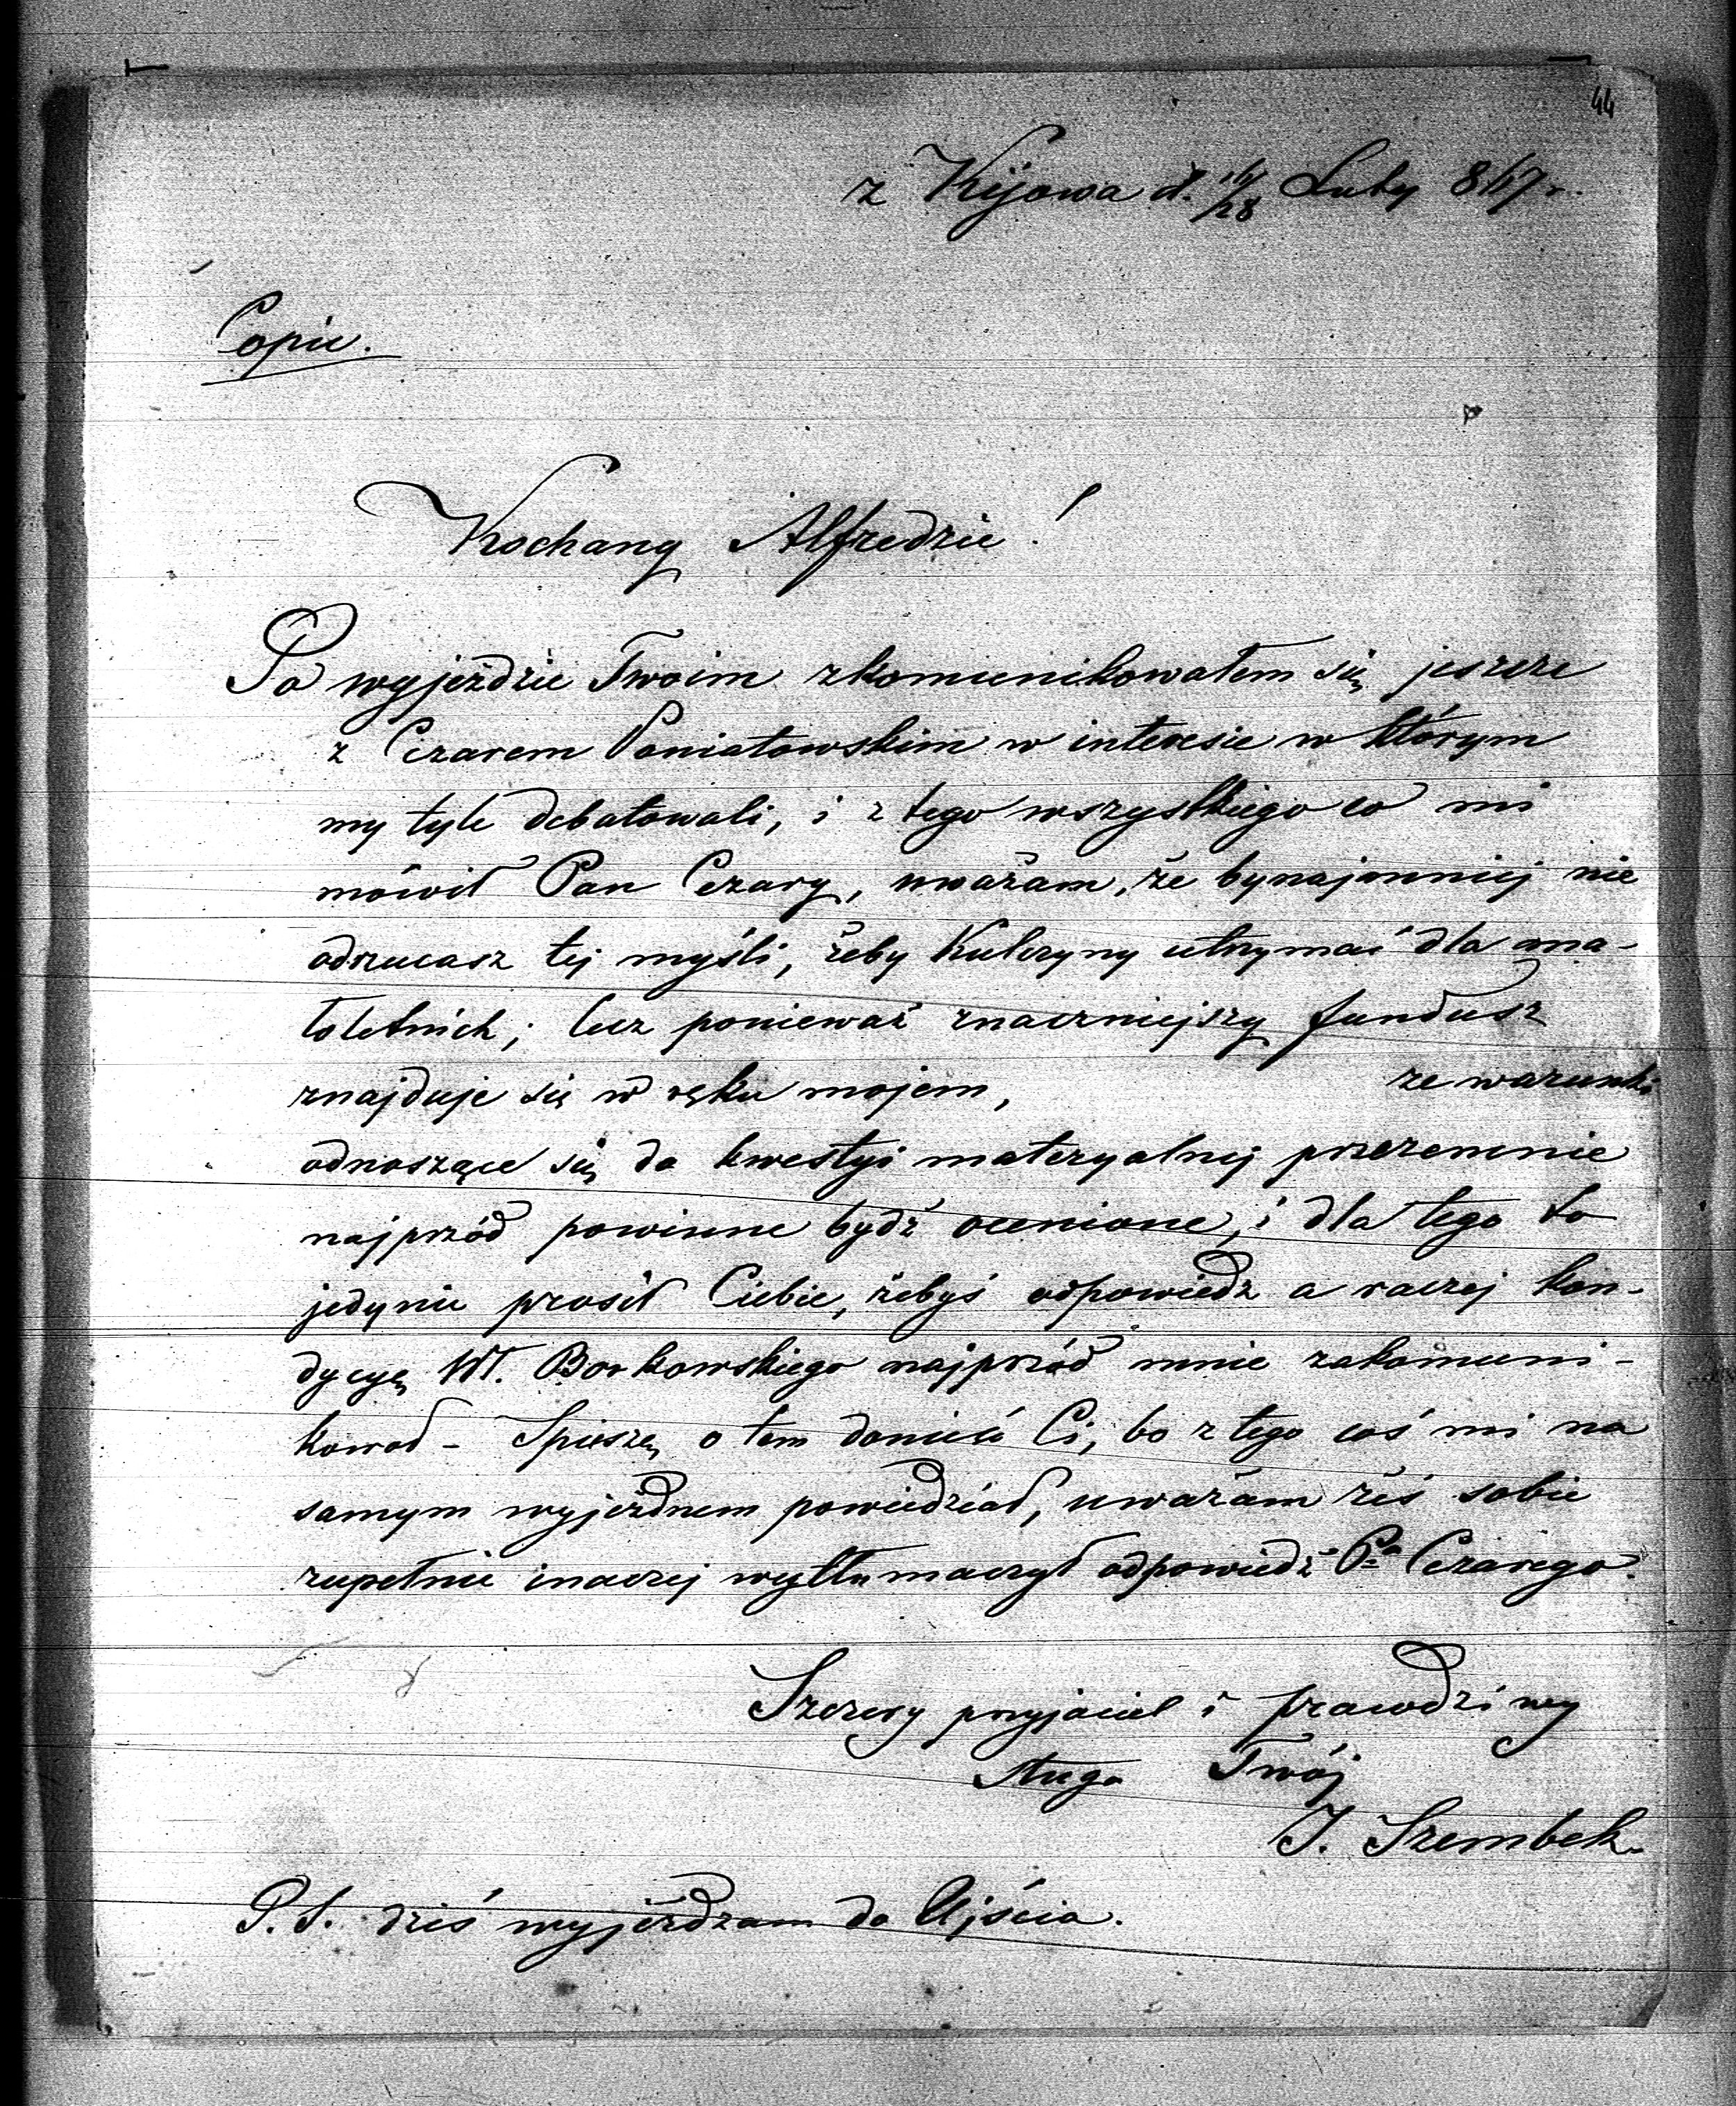 44
z Kijowa d. 16/28 Luty 867 r.
Copie.
Kochany Alfredzie!
Po wyjeździe Twoim zkomunikowałem się jeszcze
z Cezarem Poniatowskim w interesie w którym
my tyle debatowali, i z tego wszystkiego co mi
mówił Pan Cezary, uważam, że bynajmniej nie
odrzucasz tej myśli, żeby Kulczyny utrzymać dla ma-
łoletnich; lecz ponieważ znaczniejszy fundusz
znajduje się w ręku mojem, ze warunki
odnoszące się do kwestyi materyalnej przezemnie
najprzód powinne bydź ocenione, i dla tego to
jedynie prosił Ciebie, żebyś odpowiedź a raczej kon-
dycyę Wł. Borkowskiego najprzód mnie zakomuni-
kował - Spieszę o tem donieść Ci, bo z tego coś mi na
samym wyjezdnem powiedział, uważam żeś sobie
zupełnie inaczej wytłumaczył odpowiedź Pa Cezarego.
Szczery przyjaciel i prawdziwy
sługa Twój
J. Szembek.
P.S. dziś wyjeżdżam do Ujścia.